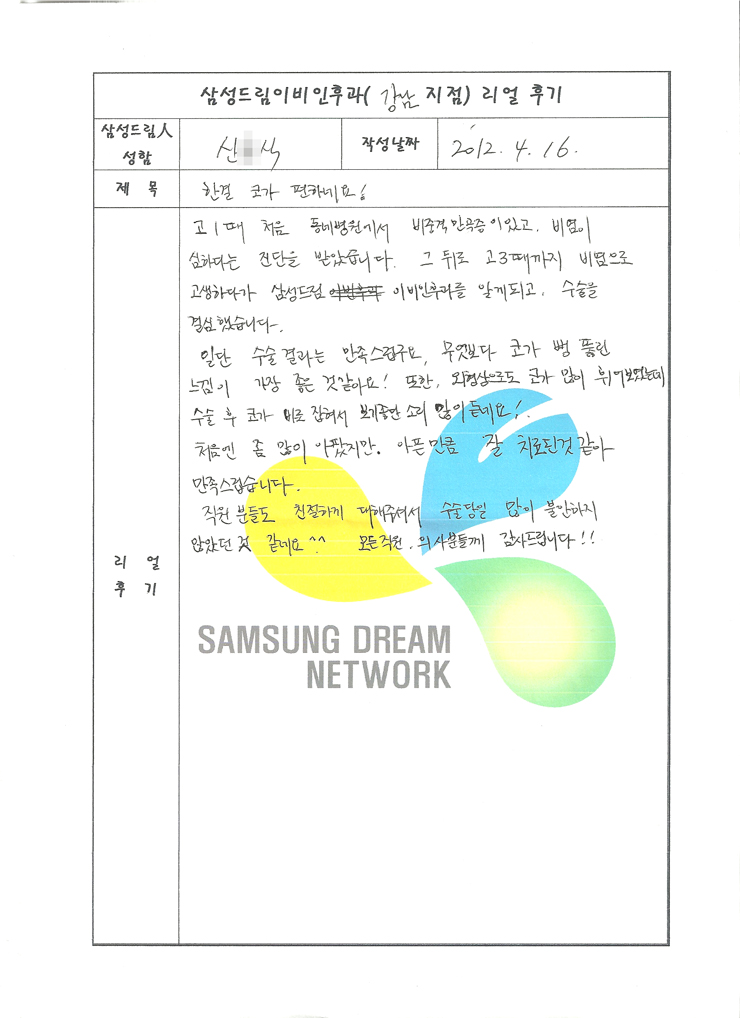 삼성드림이비인후과( 강남 지점) 리얼 후기
삼성드림人 성함
신 식
작성날짜
2012. 4. 16.
제 목
한결 코가 편하네요!
리 얼 후 기
고1때 처음 동네병원에서 비중격만곡증이있고, 비염이
심하다는 진단을 받았습니다. 그 뒤로 고3때까지 비염으로
고생하다가 삼성드림 이비인후과를 알게되고, 수술을
결심했습니다.
일단 수술결과는 만족스럽구요, 무엇보다 코가 뻥 뚫린
느낌이 가장 좋은 것같아요! 또한, 외형상으로도 코가 많이 휘어보였는데
수술 후 코가 바로 잡혀서 보기좋단 소리 많이 듣네요!
처음엔 좀 많이 아팠지만, 아픈만큼 잘 치료된것 같아
만족스럽습니다.
직원분들도 친절하게 대해주셔서 수술당일 많이 불안하지
않았던 것 같네요^^ 모든직원, 의사분들께 감사드립니다!!
SAMSUNG DREAM
NETWORK